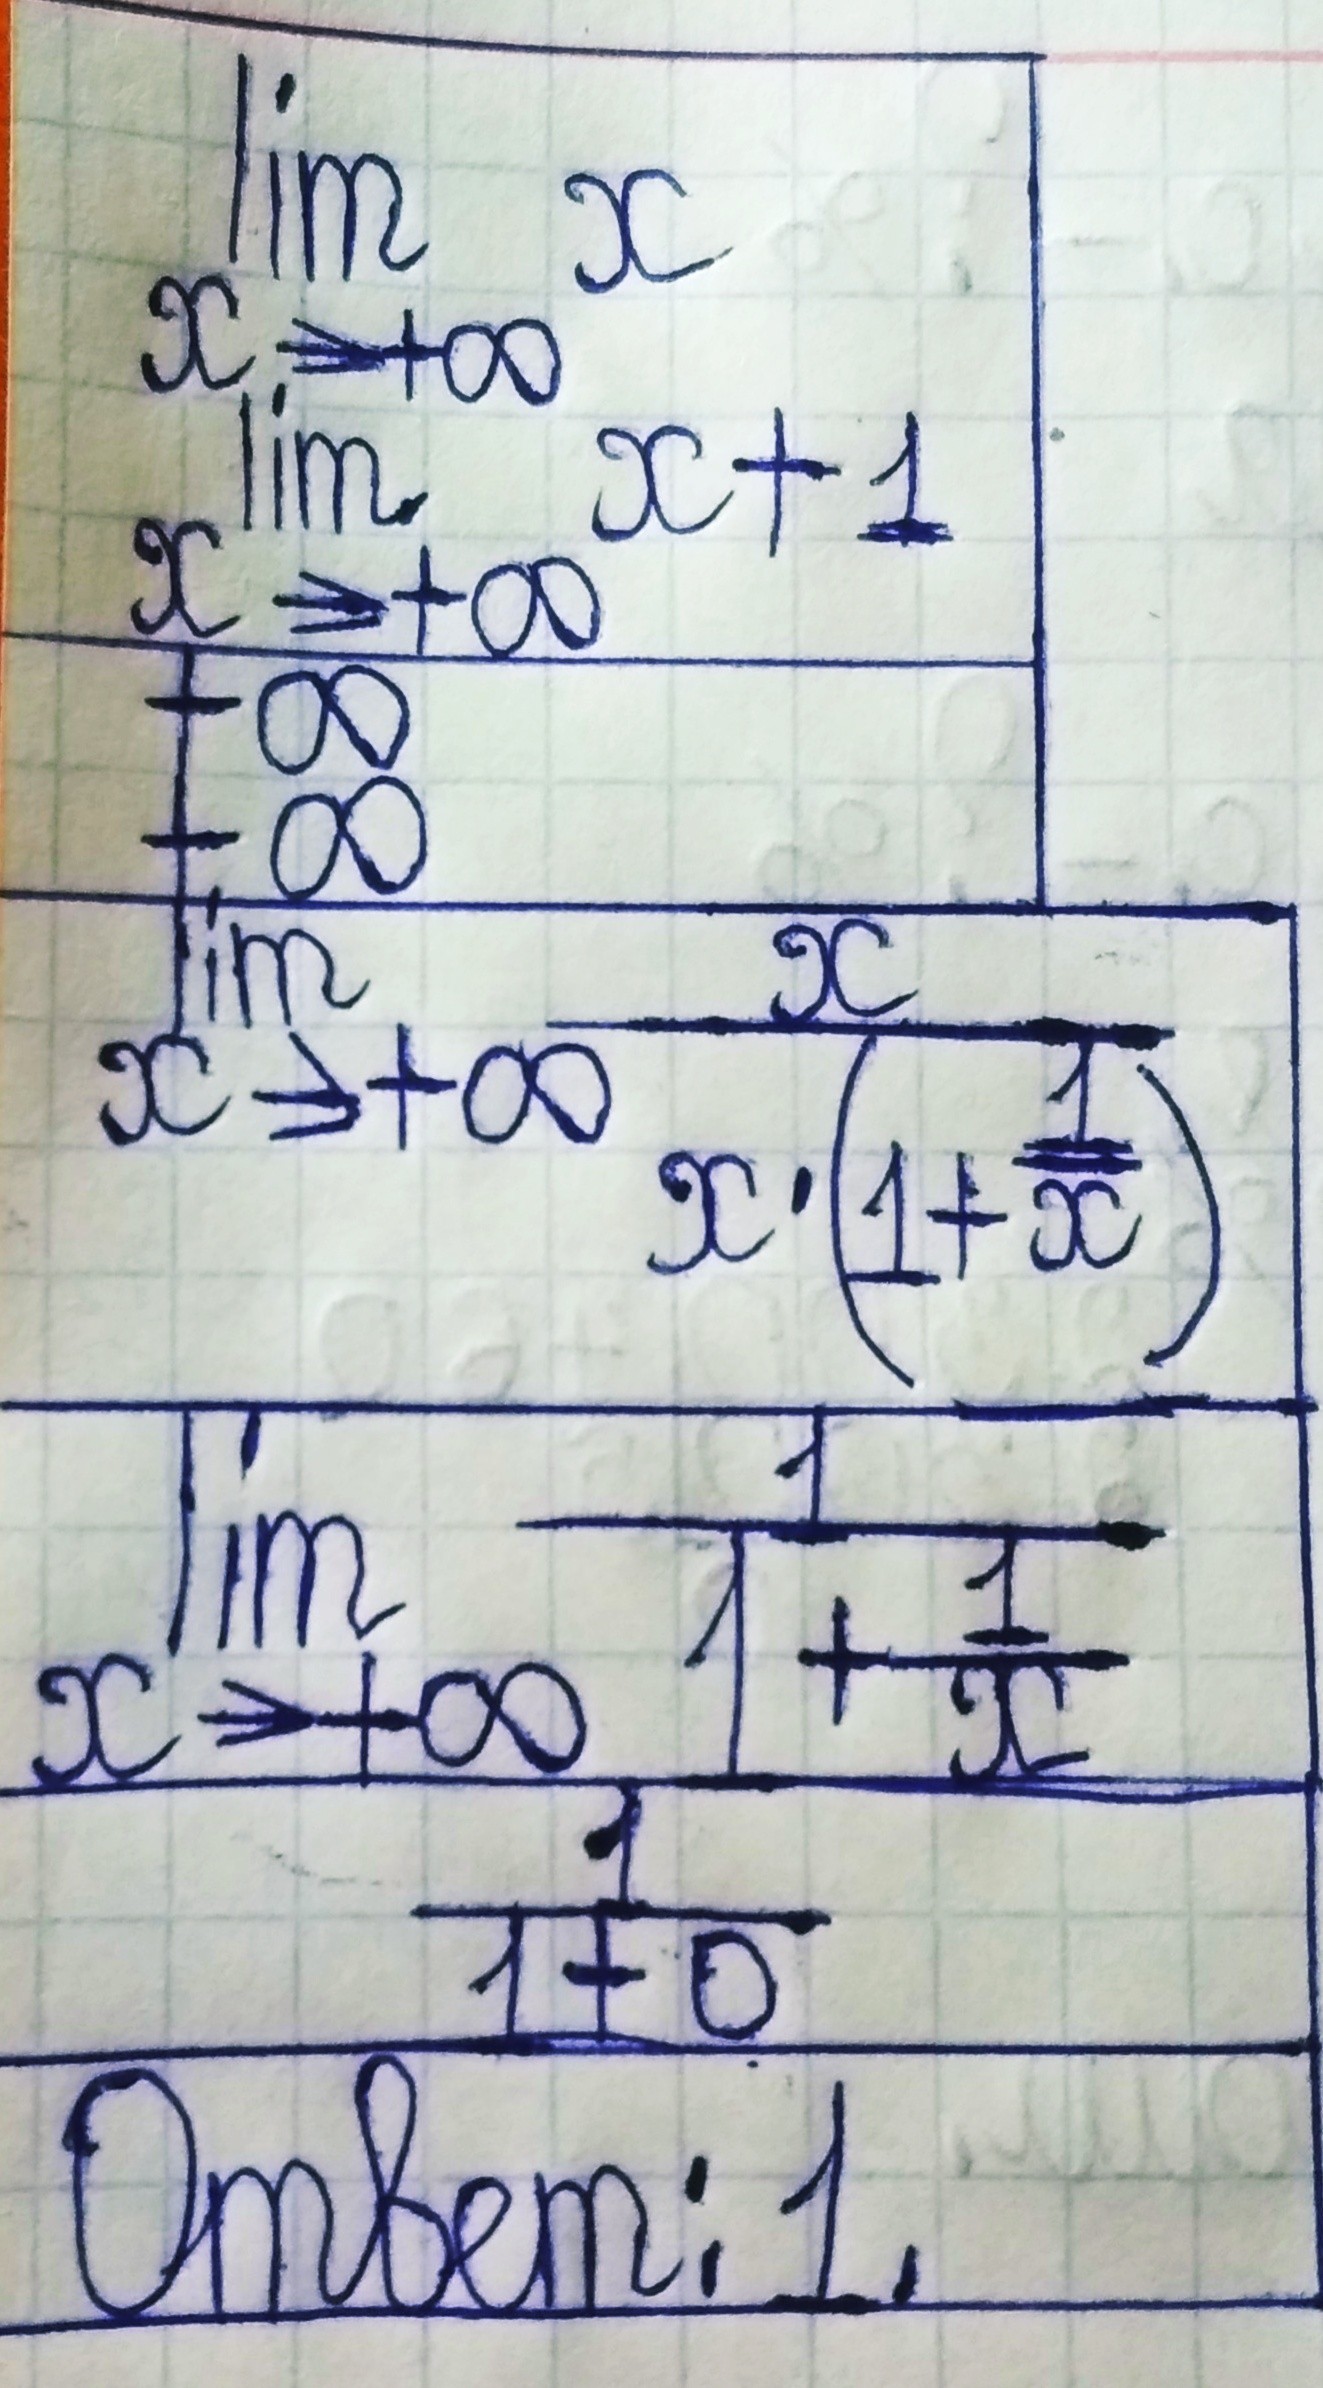 lim x
x→+∞
lim x+1
x→+∞
+∞
+∞
lim x
x→+∞ x·(1+1/x)
lim 1
x→+∞ 1+1/x
1
1+0
Ответ: 1.